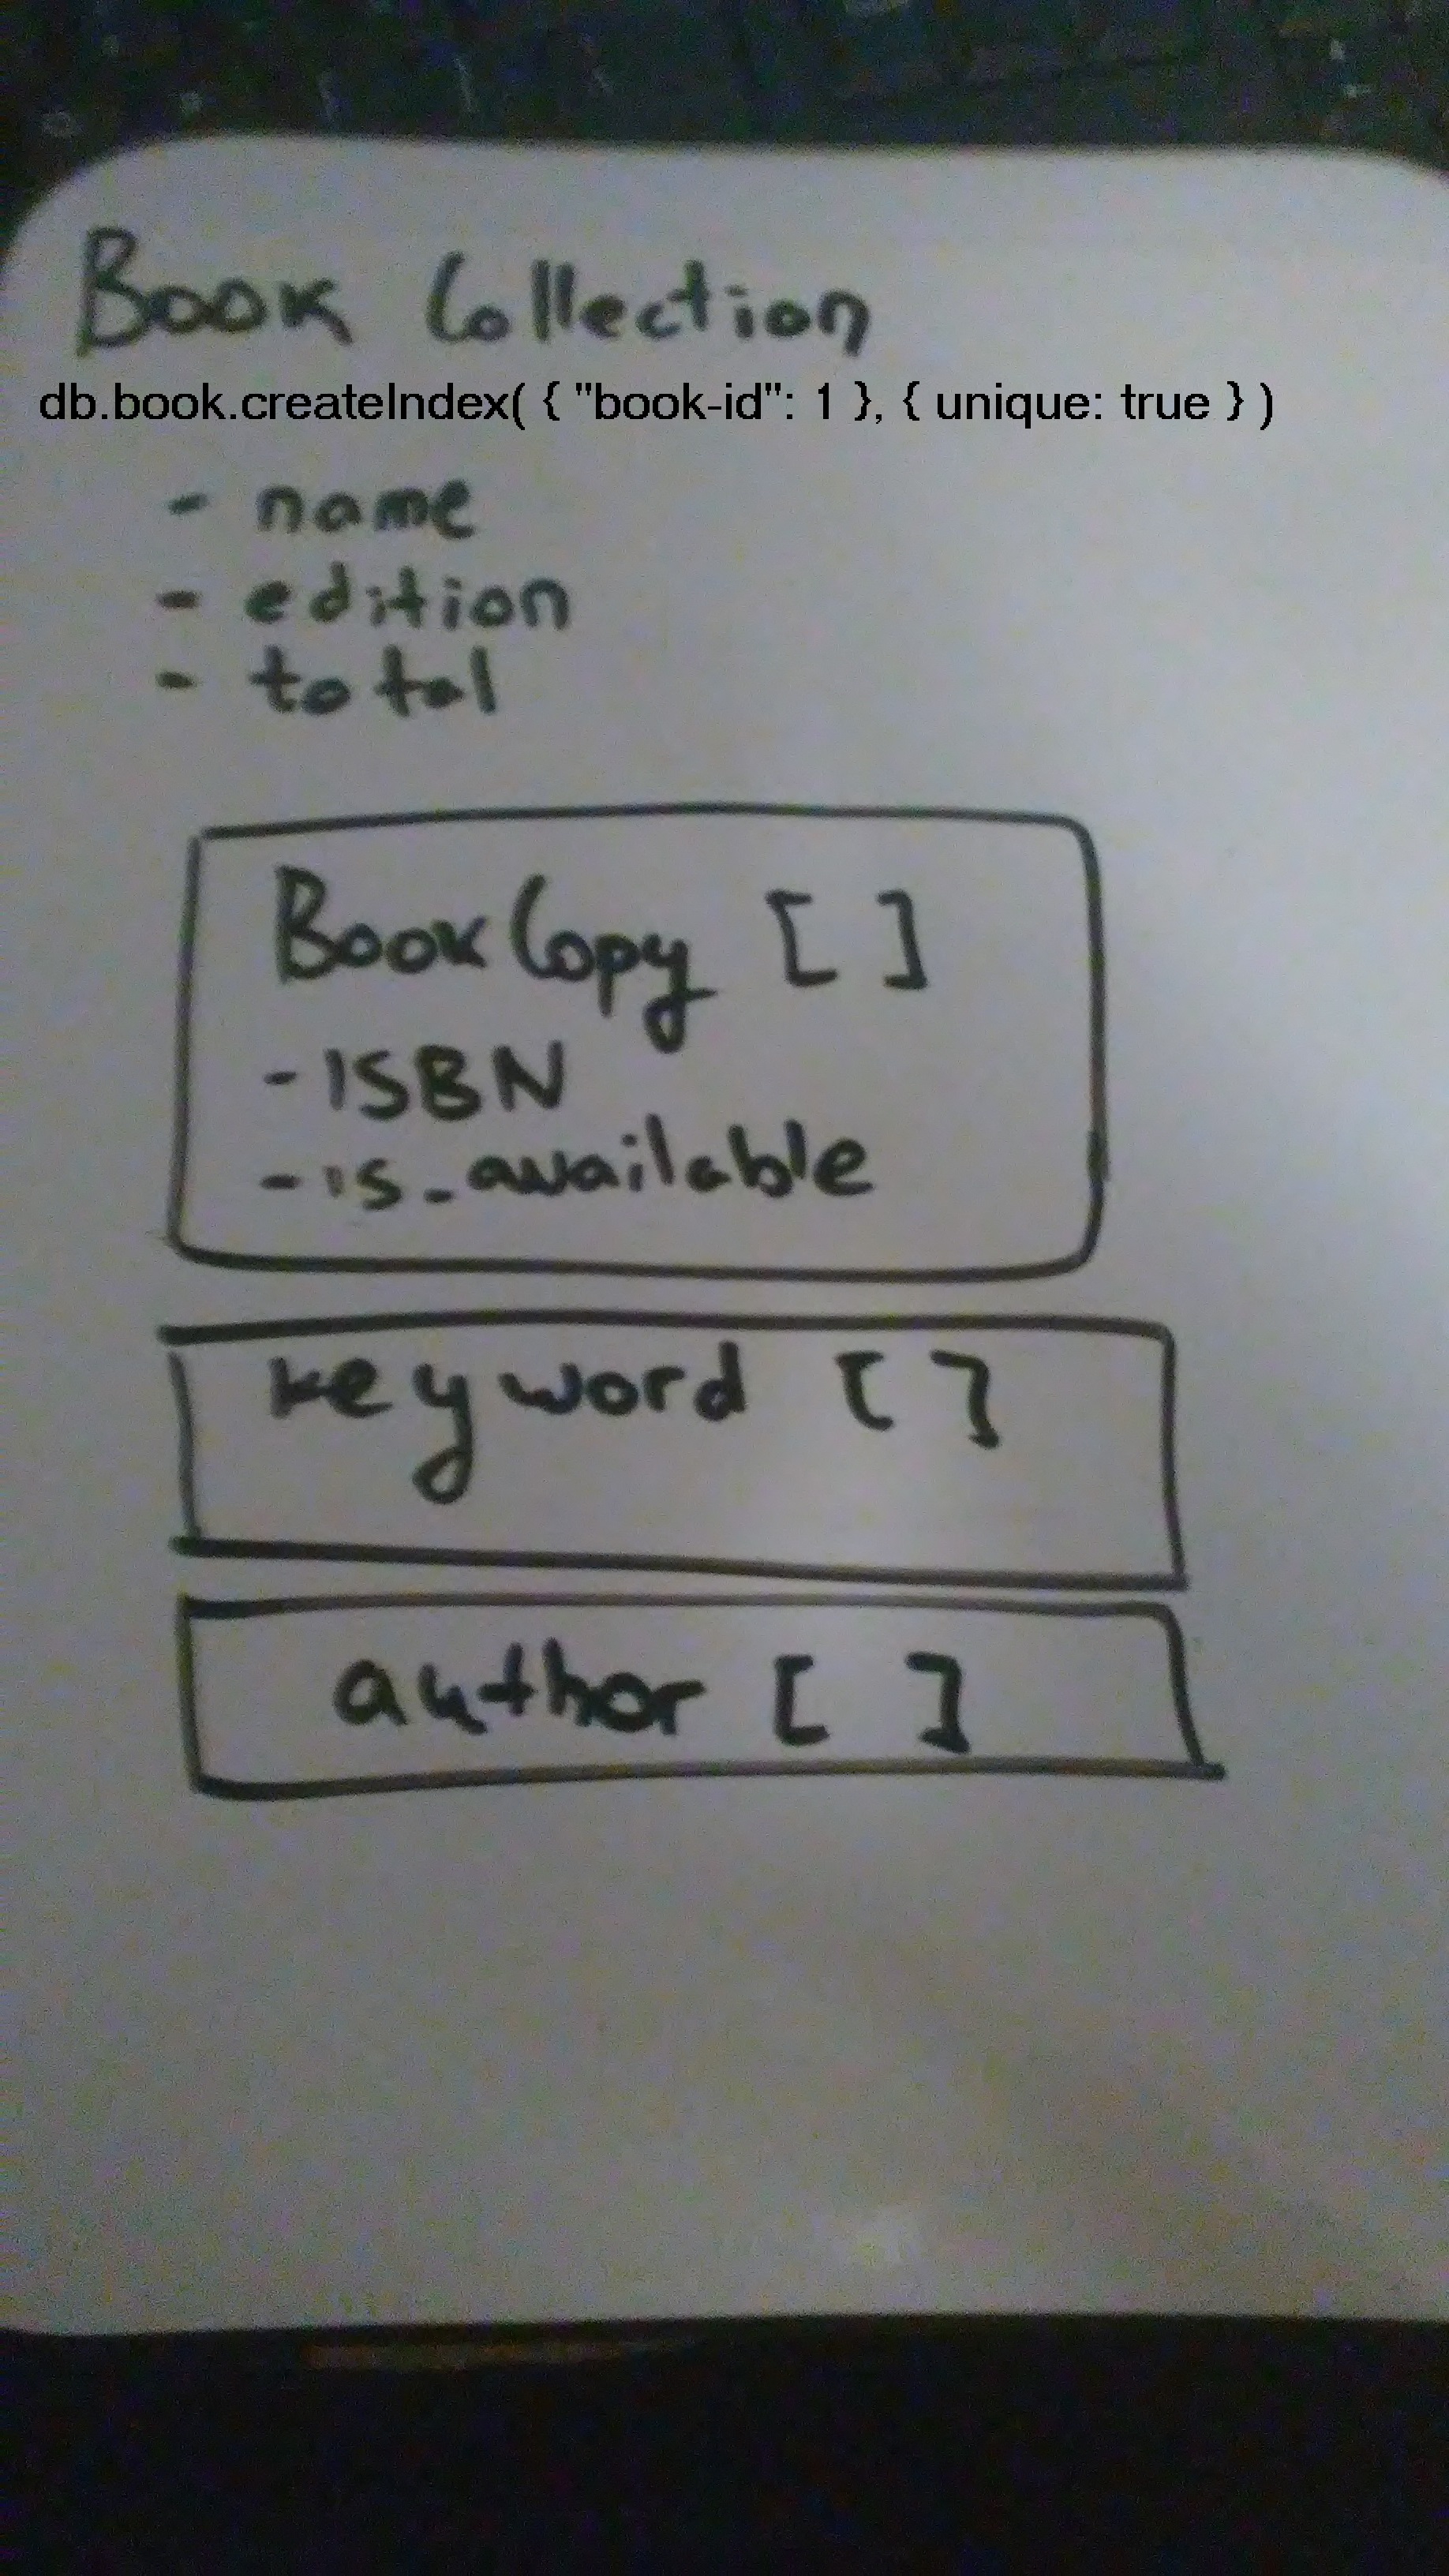 Book Collection
db.book.createIndex( { "book-id": 1 }, { unique: true } )
- name
- edition
- total
BookCopy [ ]
- ISBN
- is_available
keyword [ ]
author [ ]